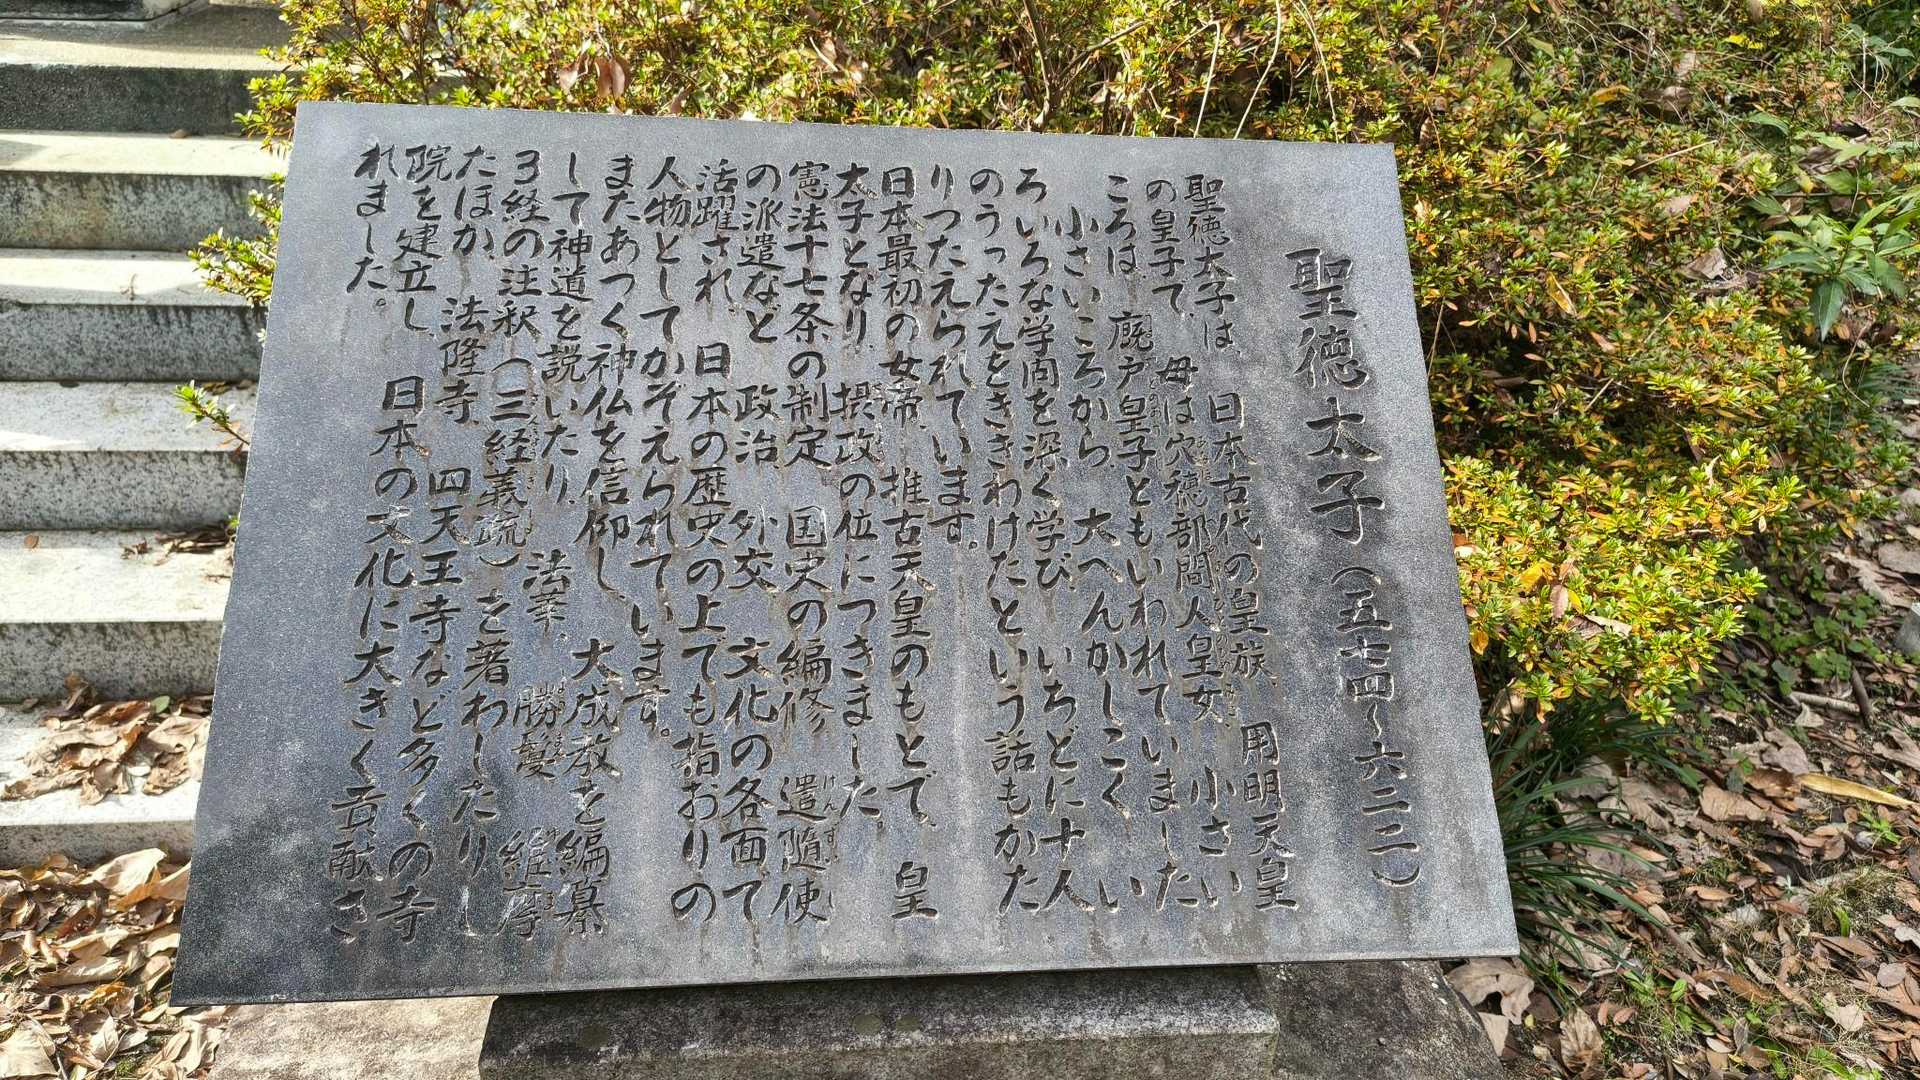 聖徳太子（五七四～六二二）
聖徳太子は、日本古代の皇族、用明天皇
の皇子で、母は穴穂部間人皇女、小さい
ころは、廐戸皇子ともいわれていました
小さいころから、大へんかしこく、い
ろいろな学問を深く学び、いちどに十人
のうったえをききわけたという話もかた
りつたえられています。
日本最初の女帝、推古天皇のもとで、皇
太子となり、摂政の位につきました。
憲法十七条の制定、国史の編修、遣隨使
の派遣など、政治、外交、文化の各面で
活躍され、日本の歴史の上でも指おりの
人物としてかぞえられています。
またあつく神仏を信仰し、大成教を編纂
して神道を説いたり、法華、勝鬘、維摩
3経の注釈（三経義疏）を著わしたりし
たほか、法隆寺、四天王寺など多くの寺
院を建立し、日本の文化に大きく貢献さ
れました。